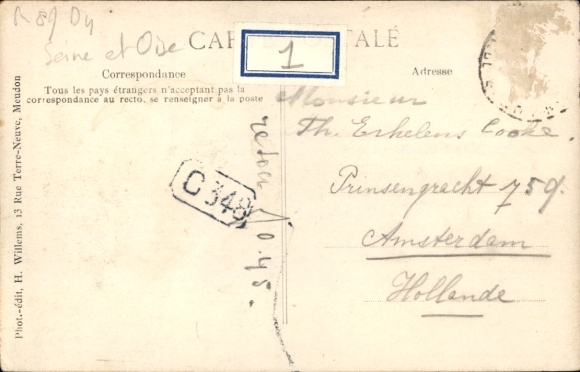 Seine et Oise
1
Correspondance
Adresse
Tous les pays étrangers n'acceptant pas la
correspondance au recto, se renseigner à la poste
Monsieur
Th. Erkelens Cooke.
Prinsengracht 759.
Amsterdam
Hollande
C 348
0.45.
Phot.-édit, H. Willems, 13 Rue Terre-Neuve, Meudon